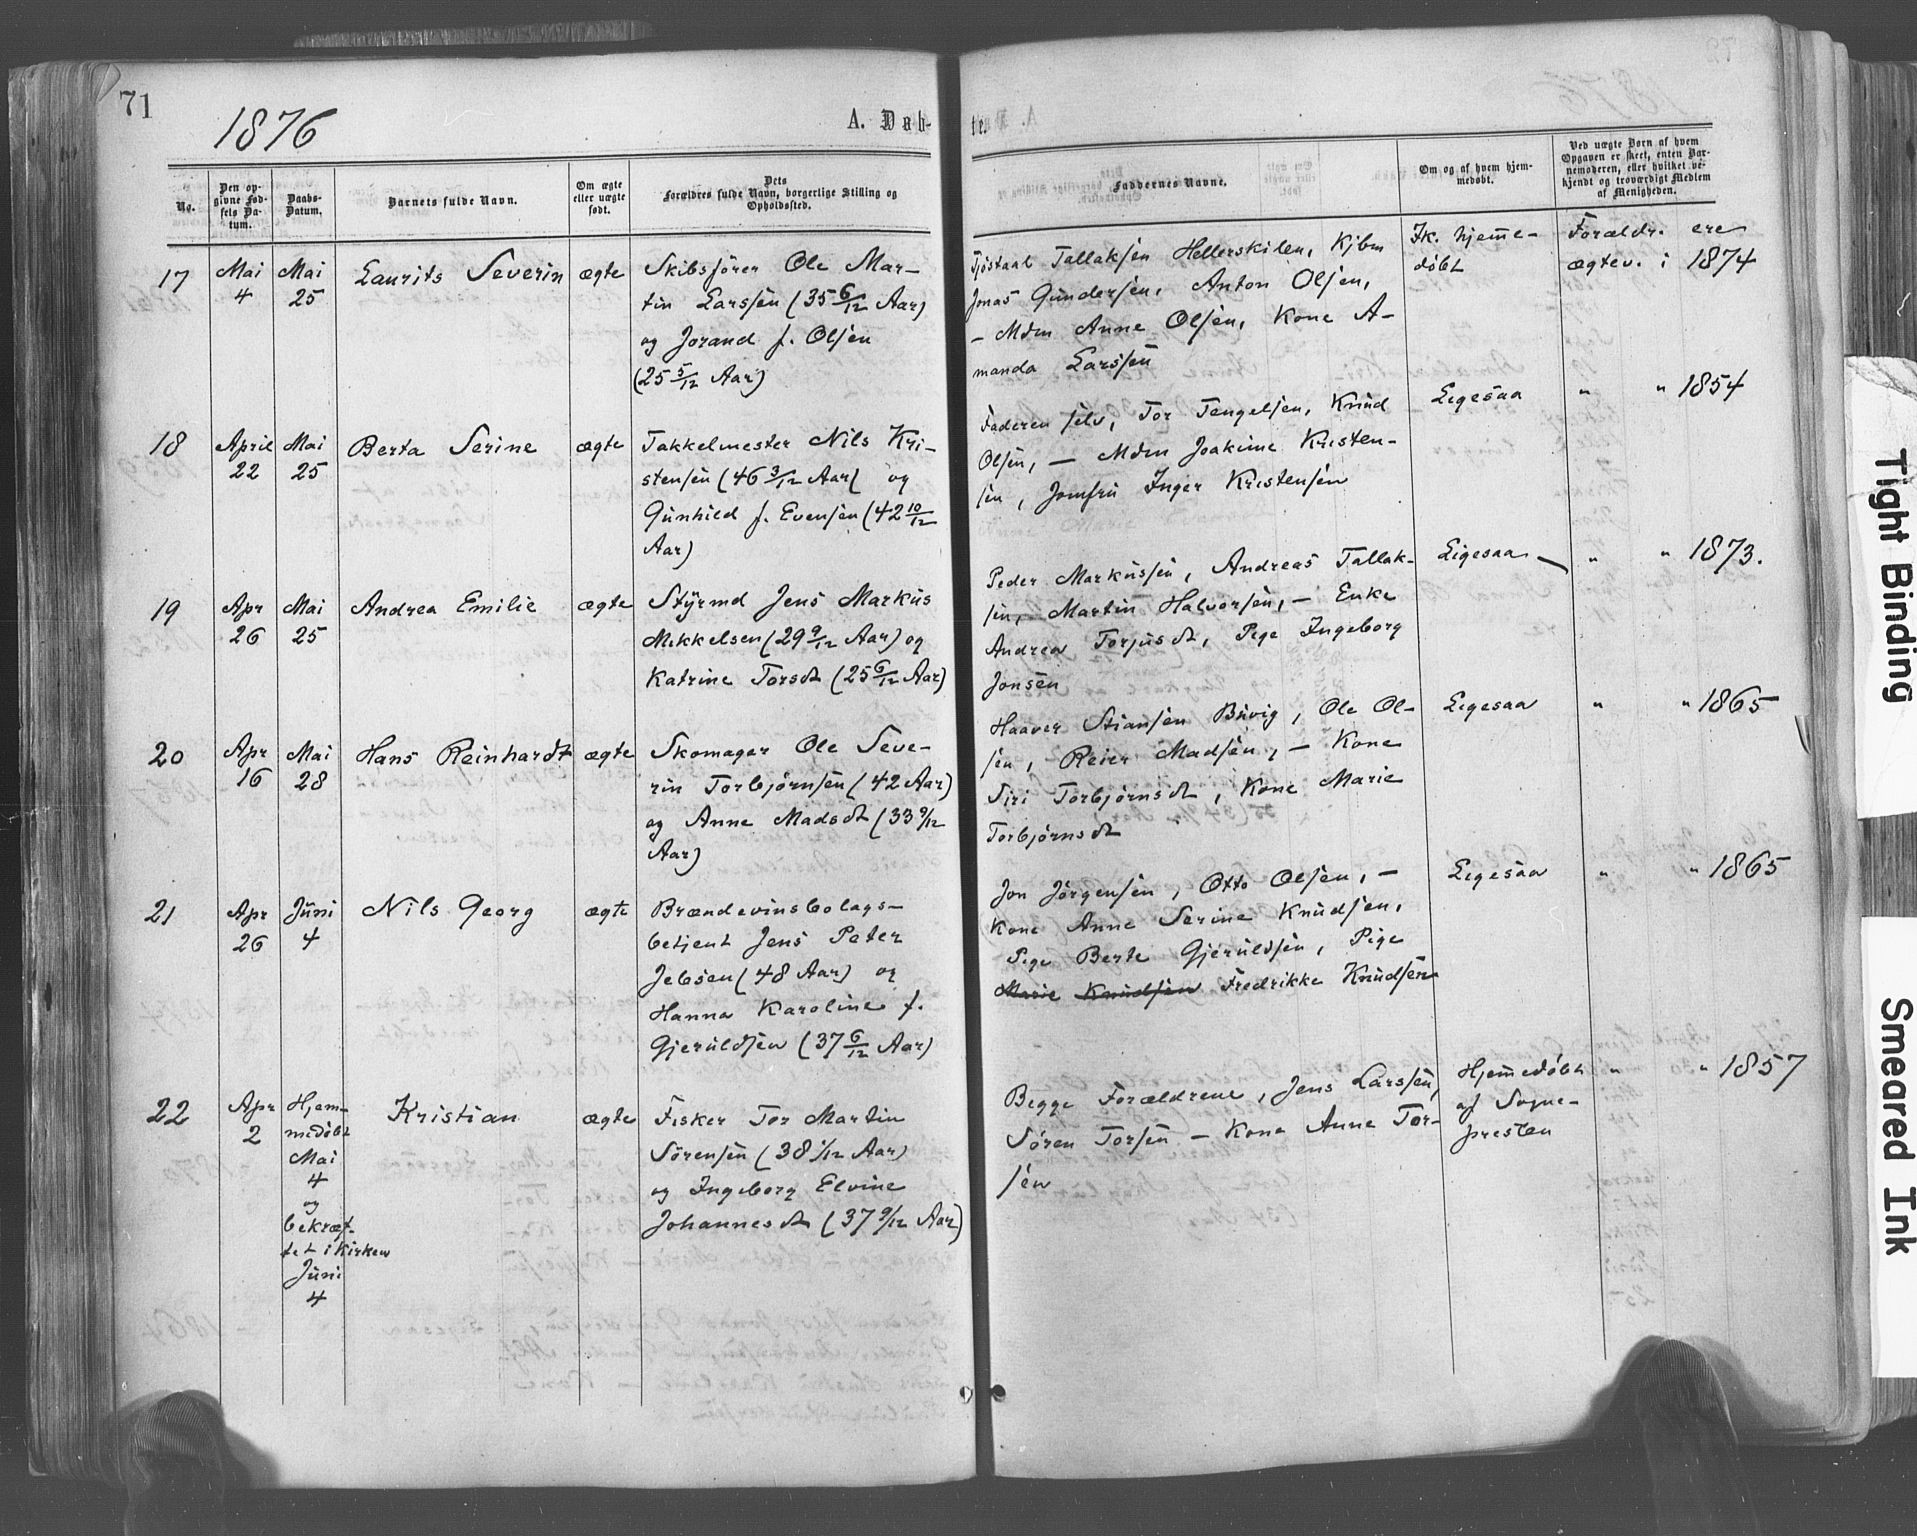 71
1876
A. Daab-
te.
No.
Den op-
givne Fød-
sels Da-
tum.
Daabs-
Datum.
Barnets fulde Navn.
Om ægte
eller uægte
født.
Dets
Forældres fulde Navn, borgerlige Stilling og
Opholdssted.
Faddernes Navne.
Om og af hvem hjem-
medøbt.
Ved uægte Børn af hvem
Opgaven er skeet, enten Bar-
nemoderen, eller hvilket be-
kjendt og troværdigt Medlem
af Menigheden.
17
Mai
4
Mai
25
Laurits Severin
ægte
Skibsfører Ole Mar-
tin Larssen (35 6/12 Aar)
og Jorand f. Olsen
(25 5/12 Aar)
Tjøstaal Tallaksen Hellerskilen, Kjbm
Jonas Gundersen, Anton Olsen,
- Mdm Anne Olsen, Kone A-
manda Larssen
Ik. hjemme-
døbt
Forældr. ere
ægtev. i 1874
18
April
22
Mai
25
Berta Serine
ægte
Takkelmester Nils Kri-
stensen (46 3/12 Aar( og
Gunhild f. Evensen (42 10/12
Aar)
Faderen selv, Tor Tengelsen, Knud
Olsen, - Mdm Joakime Kristen-
sen, Jomfru Inger Kristensen
Ligesaa
" " 1854
19
Apr
26
Mai
25
Andrea Emilie
ægte
Styrmd Jens Markus
Mikkelsen (29 9/12 Aar) og
Katrine Torsdt (25 6/12 Aar)
Peder Markussen, Andreas Tallak-
sen, Martin Halvorsen, - Enke
Andrea Torjusdt, Pige Ingeborg
Jonsen
Ligesaa
" " 1873.
20
Apr
16
Mai
28
Hans Reinhardt
ægte
Skomager Ole Seve-
rin Torbjørnsen (42 Aar)
og Anne Madsdt (33 9/12
Aar)
Haaver Stiansen Buvig, Ole Ol-
sen, Reier Madsen, - Kone
Siri Torbjørnsdt, Kone Marie
Torbjørnsdt
Ligesaa
" " 1865
21
Apr
26
Juni
4
Nils Georg
ægte
Brændevinsbolags-
betjent Jens Peter
Jebsen (48 Aar) og
Hanna Karoline f.
Gjeruldsen (37 6/12 Aar)
Jon Jørgensen, Otto Olsen, -
Kone Anne Serine Knudsen,
Pige Berte Gjeruldsen, Pige
Marie Knudsen Fredrikke Knudsen
Ligesaa
" " 1865
22
Apr
2
Hjem-
medøbt
Mai
4
og
bekræf-
tet i Kirken
Juni
4
Kristian
ægte
Fisker Tor Martin
Sørensen (38 1/12 Aar)
og Ingeborg Elvine
Johannesdt (37 9/12 Aar)
Begge Forældrene, Jens Larssen,
Søren Torsen - Kone Anne Tor-
sen
Hjemmedøbt
af Sogne-
presten
" " 1857
Tight Binding
Smeared Ink